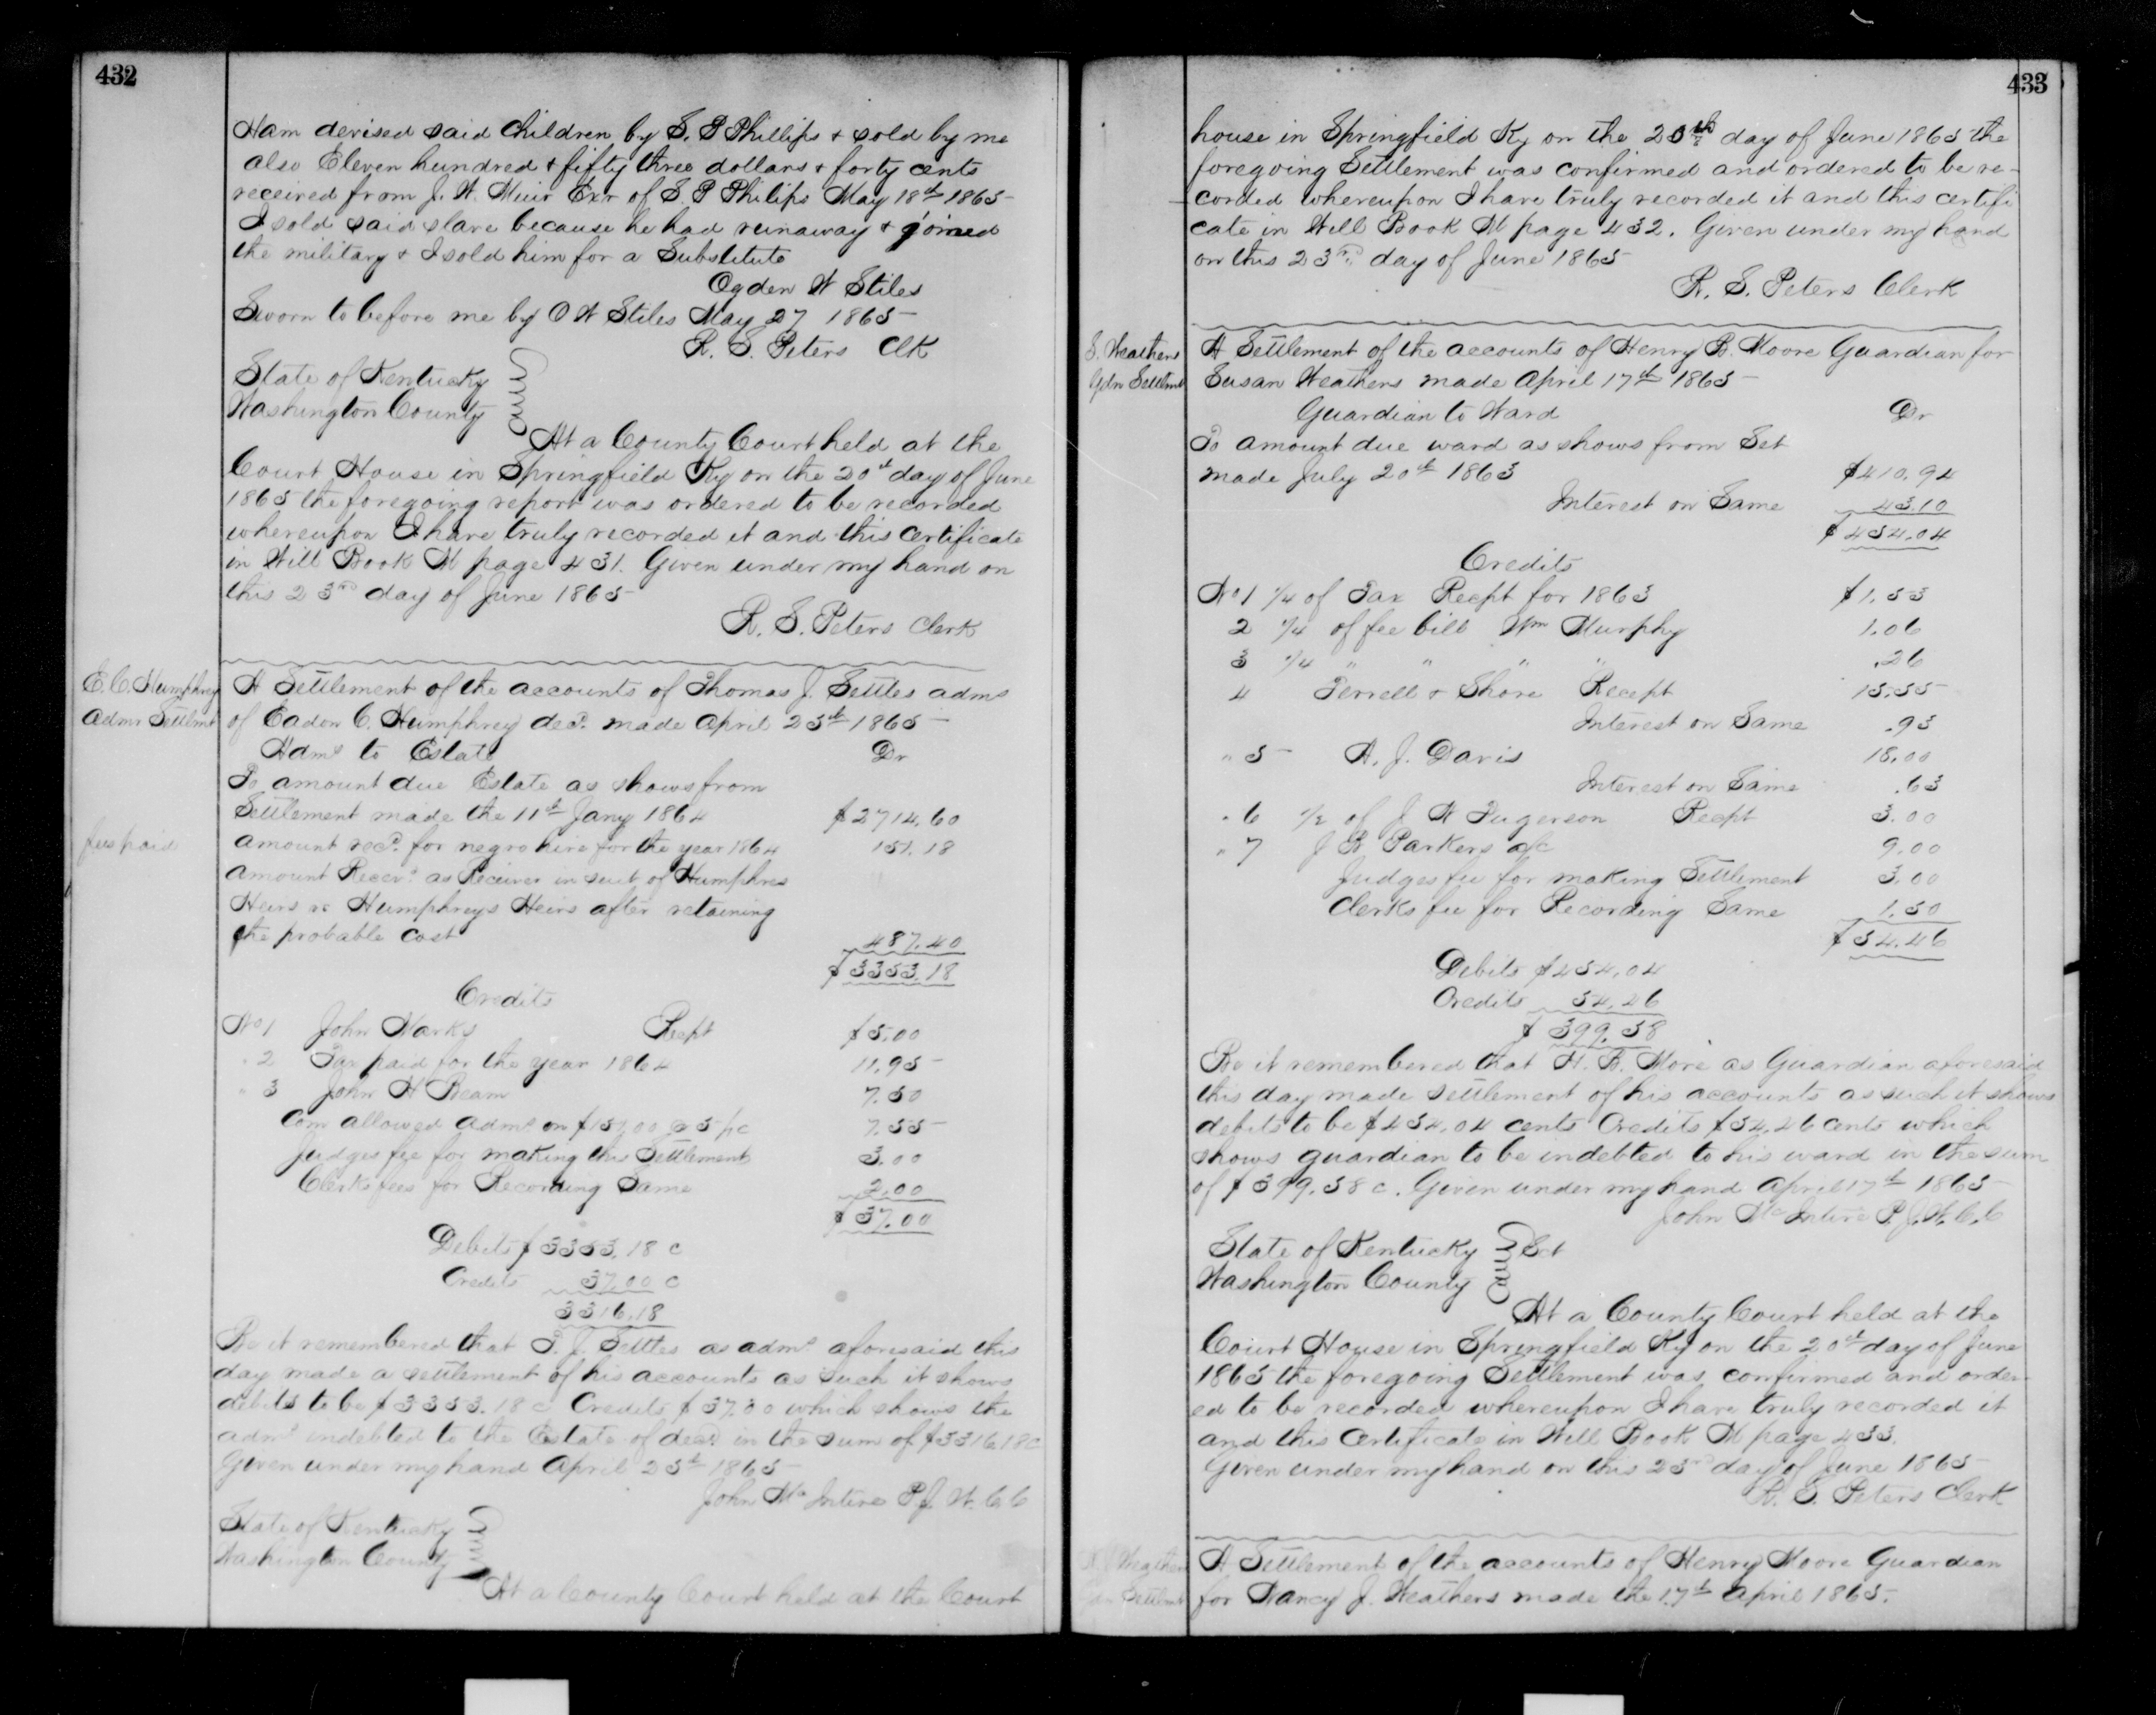 432
Ham devised said children by S. P Phillips & sold by me
also Eleven hundred & fifty three dollars & forty cents
received from J. W. Muir Exr of S. P Philips May 18th 1865
I sold said slave because he had runaway & joined
the military & I sold him for a Substitute
Ogden W Stiles
Sworn to before me by O W Stiles May 27 1865
R. S. Peters Clk
State of Kentucky
Washington County
At a County Court held at the
Court House in Springfield Ky on the 20th day of June
1865 the foregoing report was ordered to be recorded
whereupon I have truly recorded it and this certificate
in Will Book M page 431. Given under my hand on
this 23rd day of June 1865
R. S. Peters Clerk
E. C. Humphrey
Admr Settlmt
A Settlement of the accounts of Thomas J. Settles admr
of Eadon C. Humphrey decd. made April 25th 1865
Admr to Estate Dr
To amount due Estate as shows from
Settlement made the 11th Jany 1864 $2714.60
fees paid
amount recd. for negro hire for the year 1864 151.18
amount Receivd. as Receiver in suit of Humphres
Heirs vs Humphreys Heirs after retaining
the probable cost 487.40
$3353.18
Credits
No 1 John Marks Recpt $5.00
" 2 Tax paid for the year 1864 11.95
" 3 John H Beam 7.50
Com allowed Admr on $151.00 @ 5 pc 7.55
Judges fee for making this Settlement 3.00
Clerks fees for Recording Same 2.00
$37.00
Debits $3353.18 c
Credits 37.00 c
3316.18
Be it remembered that T. J. Settles as admr aforesaid this
day made a settlement of his accounts as such it shows
debits to be $3353.18 c Credits $37.00 which shows the
admr indebted to the Estate of decd in the sum of $3316.18c
Given under my hand April 25th 1865
John McIntire P. J. W. C. C
State of Kentucky
Washington County
At a County Court held at the Court
433
house in Springfield Ky on the 20th day of June 1865 the
foregoing Settlement was confirmed and ordered to be re-
corded whereupon I have truly recorded it and this certifi
cate in Will Book M page 432. Given under my hand
on this 23rd day of June 1865
R. S. Peters Clerk
S. Weathers
Gdn Settlmt
A Settlement of the accounts of Henry B. Moore Guardian for
Susan Weathers made April 17th 1865
Guardian to Ward Dr
To amount due ward as shows from Set
made July 20th 1863 $410.94
Interest on Same 43.10
$454.04
Credits
No 1 1/4 of Tax Recpt for 1863 $1.53
2 1/4 of fee bill Wm Murphy 1.06
3 1/4 " " " " .26
4 Terrell & Shore Recept 15.55
Interest on Same .93
" 5 A. J. Davis 18.00
Interest on Same .63
" 6 1/2 of J W Fugerson Recpt 3.00
" 7 J R Parkers a/c 9.00
Judges fee for making Settlement 3.00
Clerks fee for Recording Same 1.50
$54.46
Debits $454.04
Credits 54.46
$399.58
Be it remembered that H. B. More as Guardian aforesaid
this day made settlement of his accounts as such it shows
debits to be $454.04 cents Credits $54.46 cents which
shows guardian to be indebted to his ward in the sum
of $399.58 c. Given under my hand April 17th 1865
John McIntire P. J. W. C. C
State of Kentucky Sct
Washington County
At a County Court held at the
Court House in Springfield Ky on the 20th day of June
1865 the foregoing Settlement was confirmed and order-
ed to be recorded whereupon I have truly recorded it
and this Certificate in Will Book M page 433.
Given under my hand on this 23rd day of June 1865
R. S. Peters Clerk
N J Weathers
Gdn Settlmt
A Settlement of the accounts of Henry Moore Guardian
for Nancy J. Weathers made the 17th April 1865.